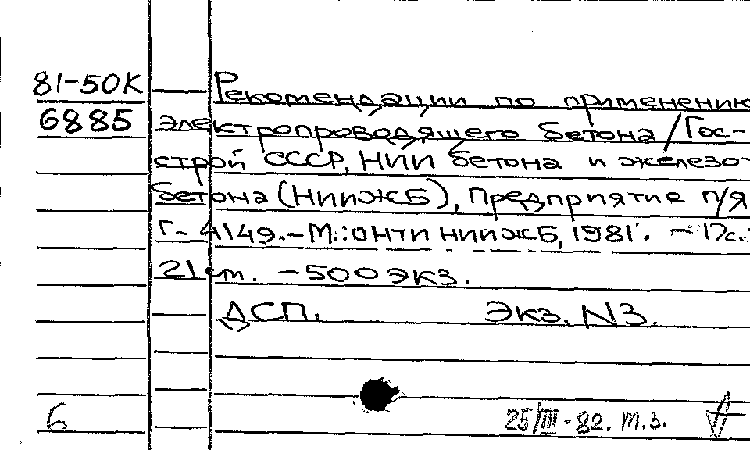 81-50К Рекомендации по применению
6885 электропроводящего бетона/Гос-
строй СССР, НИИ бетона и железо-
бетона (НИИЖБ), Предприятие п/я
Г-4149.-М.:ОНТИ НИИЖБ, 1981. - 17с.:
21 см. - 500 экз.
ДСП. Экз. N3.
6 25/III-82. т.з.